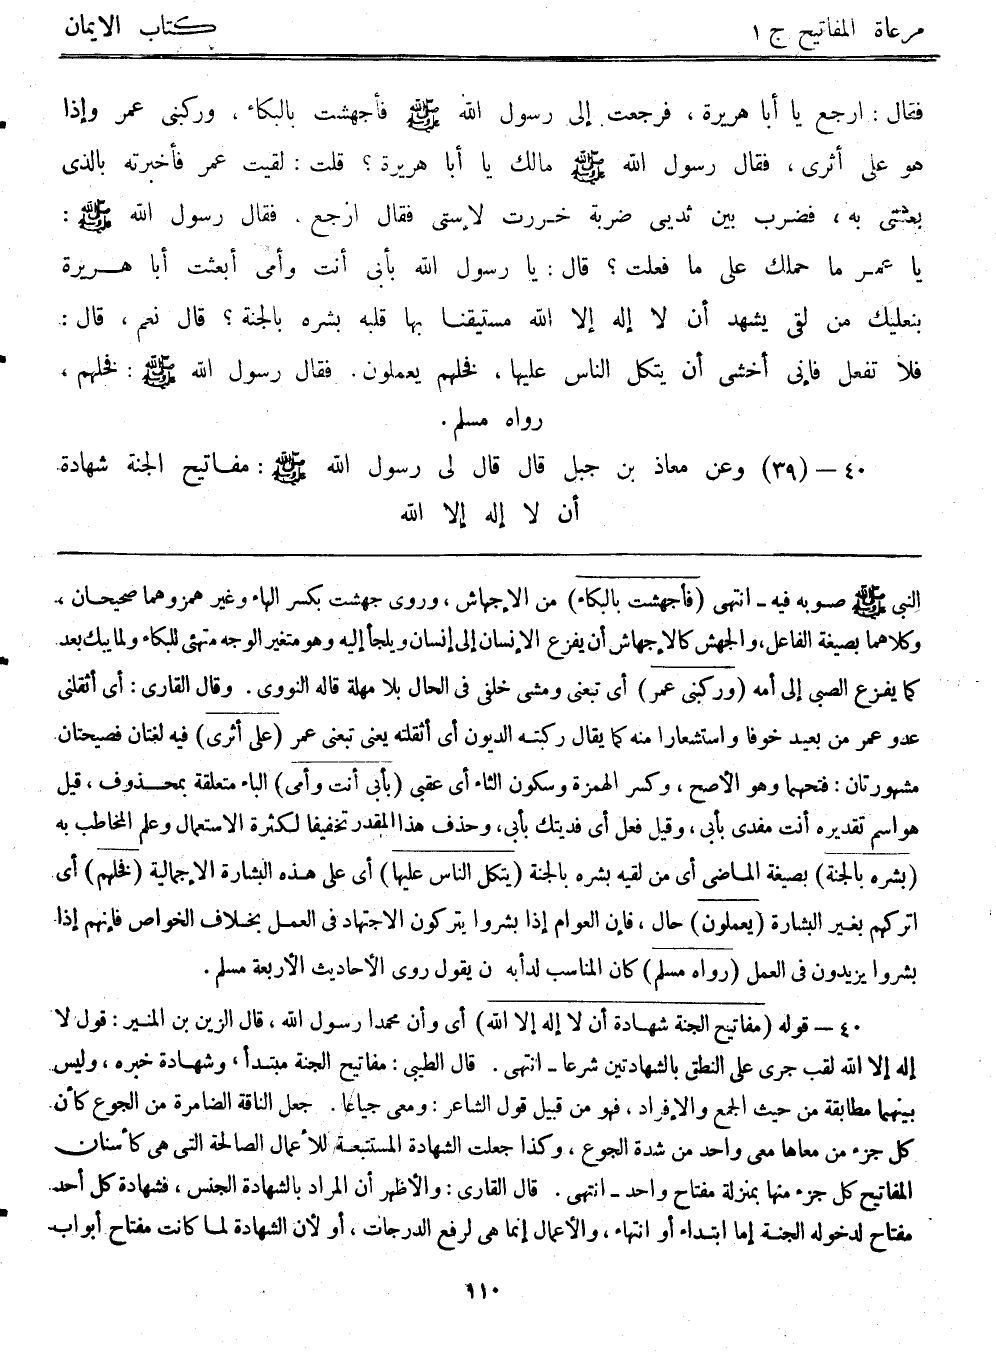 مرعاة المفاتيح ج ١
كتاب الايمان
فقال : ارجع يا أبا هريرة ، فرجعت إلى رسول الله ﷺ فأجهشت بالبكاء ، وركبنى عمر وإذا
هو على أثرى ، فقال رسول الله ﷺ مالك يا أبا هريرة ؟ قلت : لقيت عمر فأخبرته بالذى
بعثتنى به ، فضرب بين ثديى ضربة خررت لإستى فقال ارجع . فقال رسول الله ﷺ :
يا عمر ما حملك على ما فعلت ؟ قال : يا رسول الله بأبى أنت وأمى أبعثت أبا هريرة
بنعليك من لقى يشهد أن لا إله إلا الله مستيقنا بها قلبه بشره بالجنة ؟ قال نعم ، قال :
فلا تفعل فإنى أخشى أن يتكل الناس عليها ، فخلهم يعملون . فقال رسول الله ﷺ : فخلهم ،
رواه مسلم .
٤٠ – (٣٩) وعن معاذ بن جبل قال قال لى رسول الله ﷺ : مفاتيح الجنة شهادة
أن لا إله إلا الله
النبى ﷺ صوبه فيه ـ انتهى (فأجهشت بالبكاء) من الإجهاش ، وروى جهشت بكسر الهاء وغير همز وهما صحيحان ،
وكلاهما بصيغة الفاعل ، والجهش كالإجهاش أن يفزع الإنسان إلى إنسان ويلجأ إليه وهو متغير الوجه متهئى للبكاء ولما يبك بعد
كما يفزع الصبى إلى أمه (وركبنى عمر) أى تبعنى ومشى خلفى فى الحال بلا مهلة قاله النووى . وقال القارى : أى أثقلنى
عدو عمر من بعيد خوفا واستشعارا منه كما يقال ركبته الديون أى أثقلته يعنى تبعنى عمر (على أثرى) فيه لغتان فصيحتان
مشهورتان : فتحهما وهو الأصح ، وكسر الهمزة وسكون الثاء أى عقبى (بأبى أنت وأمى) الباء متعلقة بمحذوف ، قيل
هو اسم تقديره أنت مفدى بأبى ، وقيل فعل أى فديتك بأبى ، وحذف هذا المقدر تخفيفا لكثرة الاستعمال وعلم المخاطب به
(بشره بالجنة) بصيغة الماضى أى من لقيه بشره بالجنة (يتكل الناس عليها) أى على هذه البشارة الإجمالية (فخلهم) أى
اتركهم بغير البشارة (يعملون) حال ، فإن العوام إذا بشروا يتركون الاجتهاد فى العمل بخلاف الخواص فإنهم إذا
بشروا يزيدون فى العمل (رواه مسلم) كان المناسب لدأبه ن يقول روى الأحاديث الأربعة مسلم .
٤٠ – قوله (مفاتيح الجنة شهادة أن لا إله إلا الله) أى وأن محمدا رسول الله ، قال الزين بن المنير : قول لا
إله إلا الله لقب جرى على النطق بالشهادتين شرعا ـ انتهى . قال الطيبى : مفاتيح الجنة مبتدأ ، وشهادة خبره ، وليس
بينهما مطابقة من حيث الجمع والإفراد ، فهو من قبيل قول الشاعر : ومعى جياعا . جعل الناقة الضامرة من الجوع كأن
كل جزء من معاها معى واحد من شدة الجوع ، وكذا جعلت الشهادة المستتبعة للأعمال الصالحة التى هى كأسنان
المفاتيح كل جزء منها بمنزلة مفتاح واحد ـ انتهى . قال القارى : والأظهر أن المراد بالشهادة الجنس ، فشهادة كل أحد
مفتاح لدخوله الجنة إما ابتداء أو انتهاء ، والأعمال إنما هى لرفع الدرجات ، أو لأن الشهادة لما كانت مفتاح أبواب
١١٠